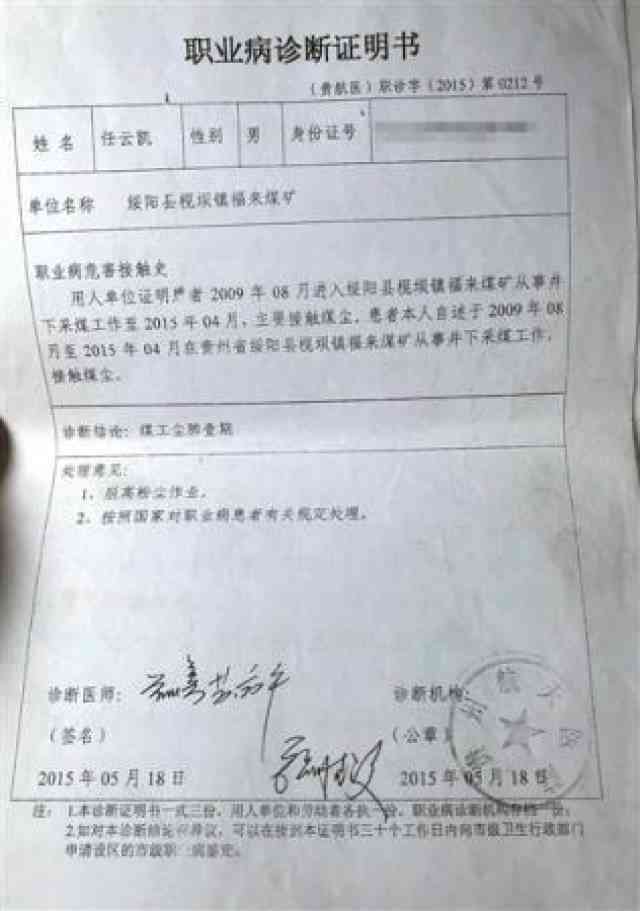 职业病诊断证明书
(贵航医)职诊字(2015)第0212号
姓 名 任云凯 性别 男 身份证号
单位名称 绥阳县枧坝镇福来煤矿
职业病危害接触史
用人单位证明患者2009年08月进入绥阳县枧坝镇福来煤矿从事井
下采煤工作至2015年04月,主要接触煤尘,患者本人自述于2009年08
月至2015年04月在贵州省绥阳县枧坝镇福来煤矿从事井下采煤工作,
接触煤尘。
诊断结论:煤工尘肺壹期
处理意见:
1、脱离粉尘作业。
2、按照国家对职业病患者有关规定处理。
诊断医师: 诊断机构:
(签名) (公章)
2015年05月18日 2015年05月18日
注: 1.本诊断证明书一式三份,用人单位和劳动者各执一份,职业病诊断机构存档一份;
2.如对本诊断结论有异议,可以在接到本证明书三十个工作日内向市级卫生行政部门
申请设区的市级职业病鉴定。